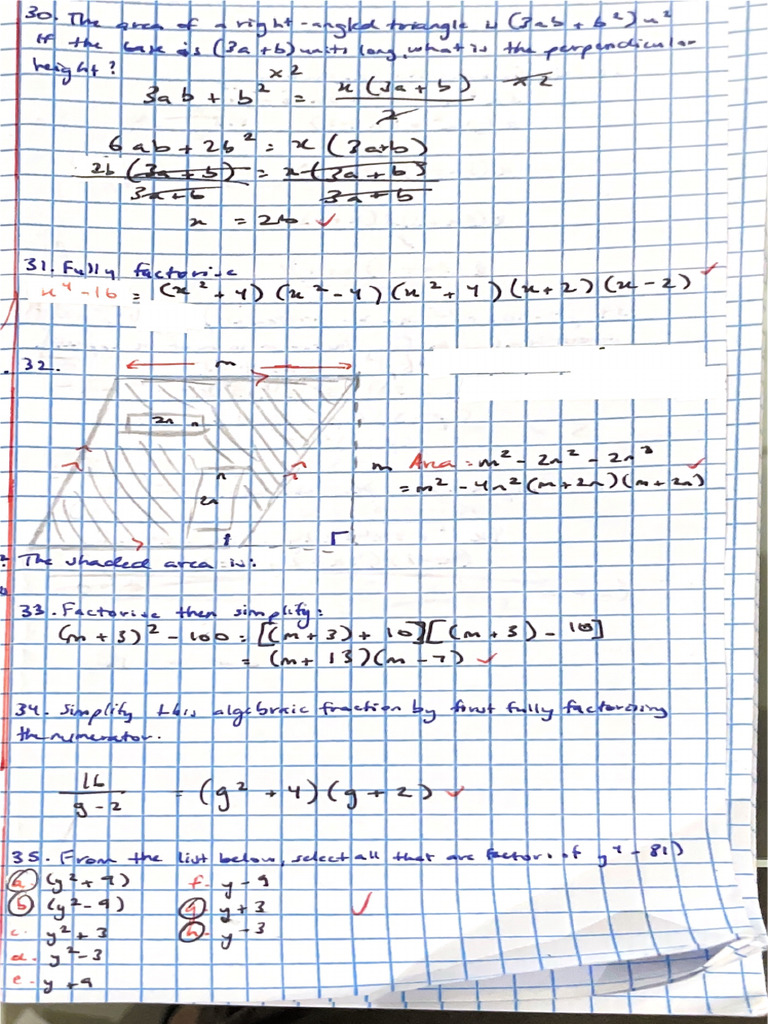 30. The area of a right-angled triangle is (3ab + b²) u²
If the base is (3a + b) units long, what is the perpendicular
height?
×2
3ab + b² = x (3a + b) / 2 ×2
6ab + 2b² = x (3a+b)
2b (3a + b) / 3a+b = x (3a + b) / 3a + b
x = 2b ✓
31. Fully factorise
x⁴ - 16 = (x² + 4) (x² - 4) (x² + 4) (x + 2) (x - 2) ✓
32. m
2n n
n
2n
m Area = m² - 2n² - 2n² ✓
= m² - 4n² (m + 2n) (m + 2n)
The shaded area is:
33. Factorise then simplify:
(m + 3)² - 100 = [(m + 3) + 10] [(m + 3) - 10]
= (m + 13) (m - 7) ✓
34. Simplify this algebraic fraction by first fully factorising
the numerator.
16 / g - 2 = (g² + 4) (g + 2) ✓
35. From the list below, select all that are factors of y⁴ - 81)
a. (y² + 9) f. y - 9
b. (y² - 9) g. y + 3 ✓
c. y² + 3 h. y - 3
d. y² - 3
e. y + 9